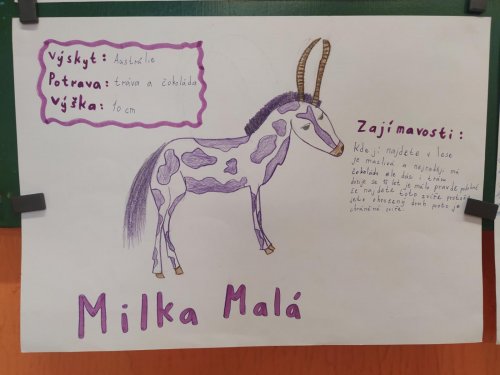 Výskyt: Austrálie
Potrava: tráva a čokoláda
Výška: 10 cm
Zajímavosti:
Když jí najdete v lese
je mazlivá a nejraději má
čokoládu ale dás i trávu
dožije se 15 let je málo pravdě podobné
že najdete toto zvíře protože
jeto ohrožený druh proto je
chráněné zvíře
Milka Malá